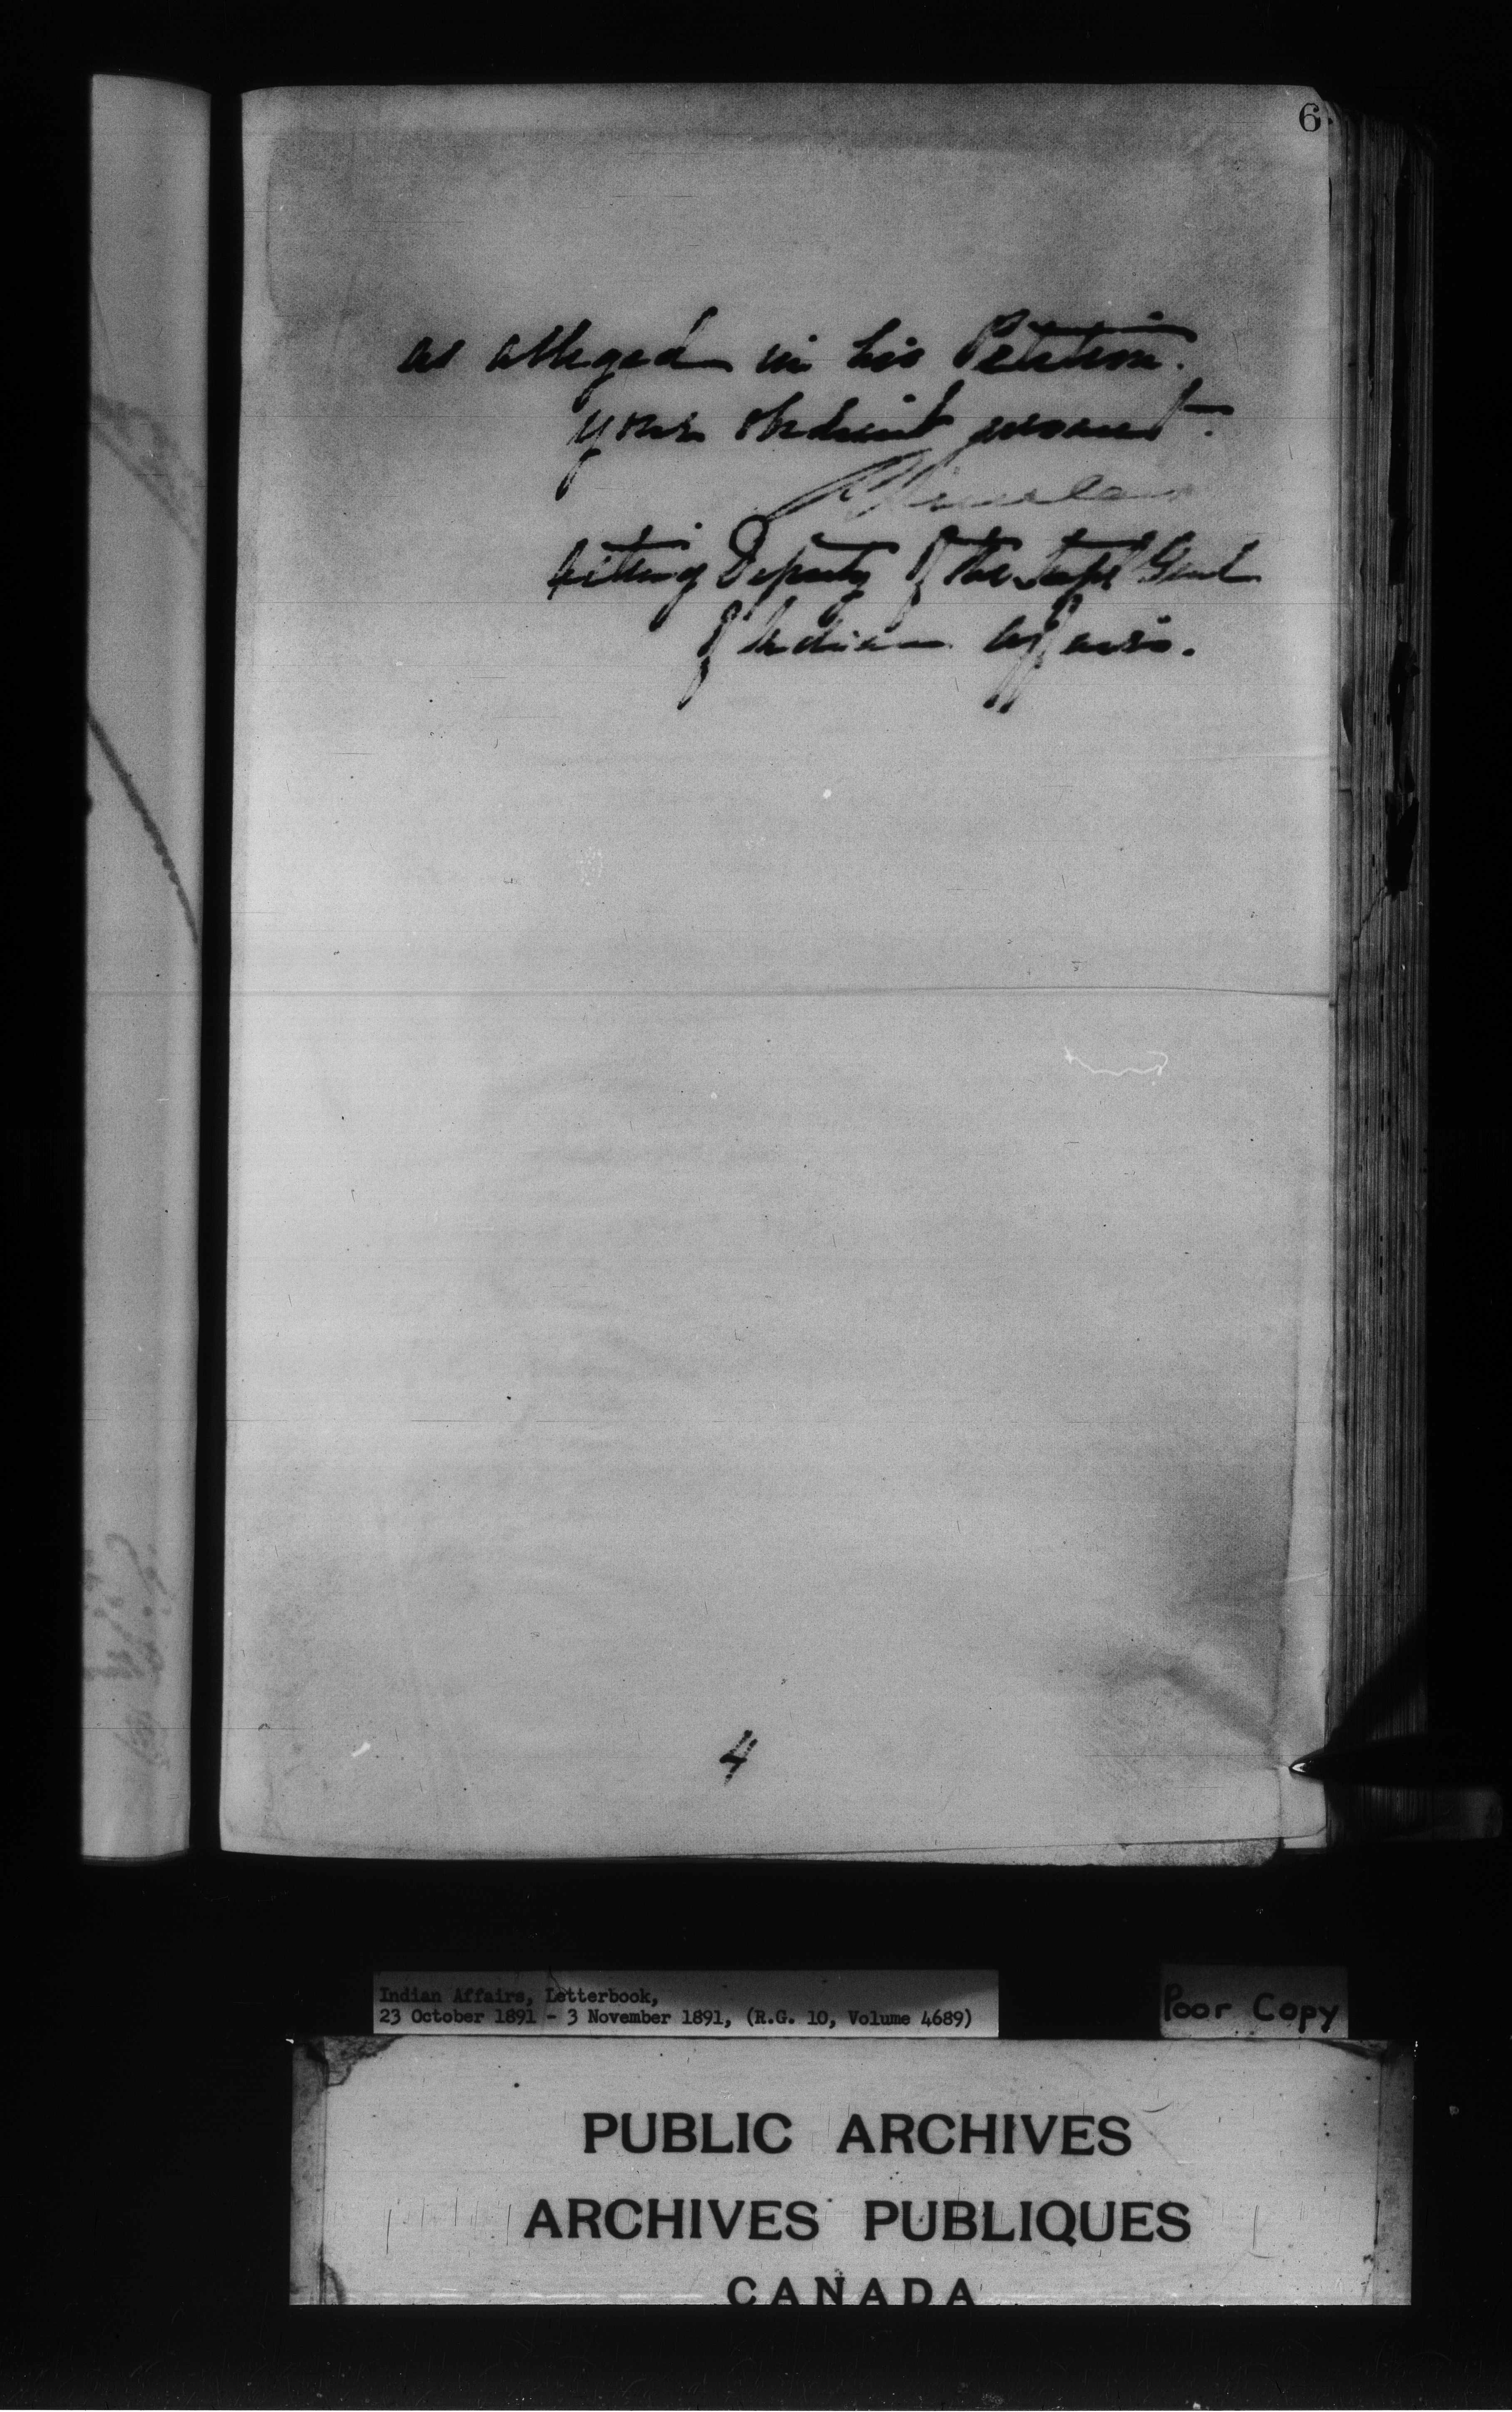 6
as alleged in his Petition.
your obedient servant.
Acting Deputy of the Supt Genl
of Indian Affairs.
4
Indian Affairs, Letterbook,
23 October 1891 - 3 November 1891, (R.G. 10, Volume 4689)
Poor Copy
PUBLIC ARCHIVES
ARCHIVES PUBLIQUES
CANADA